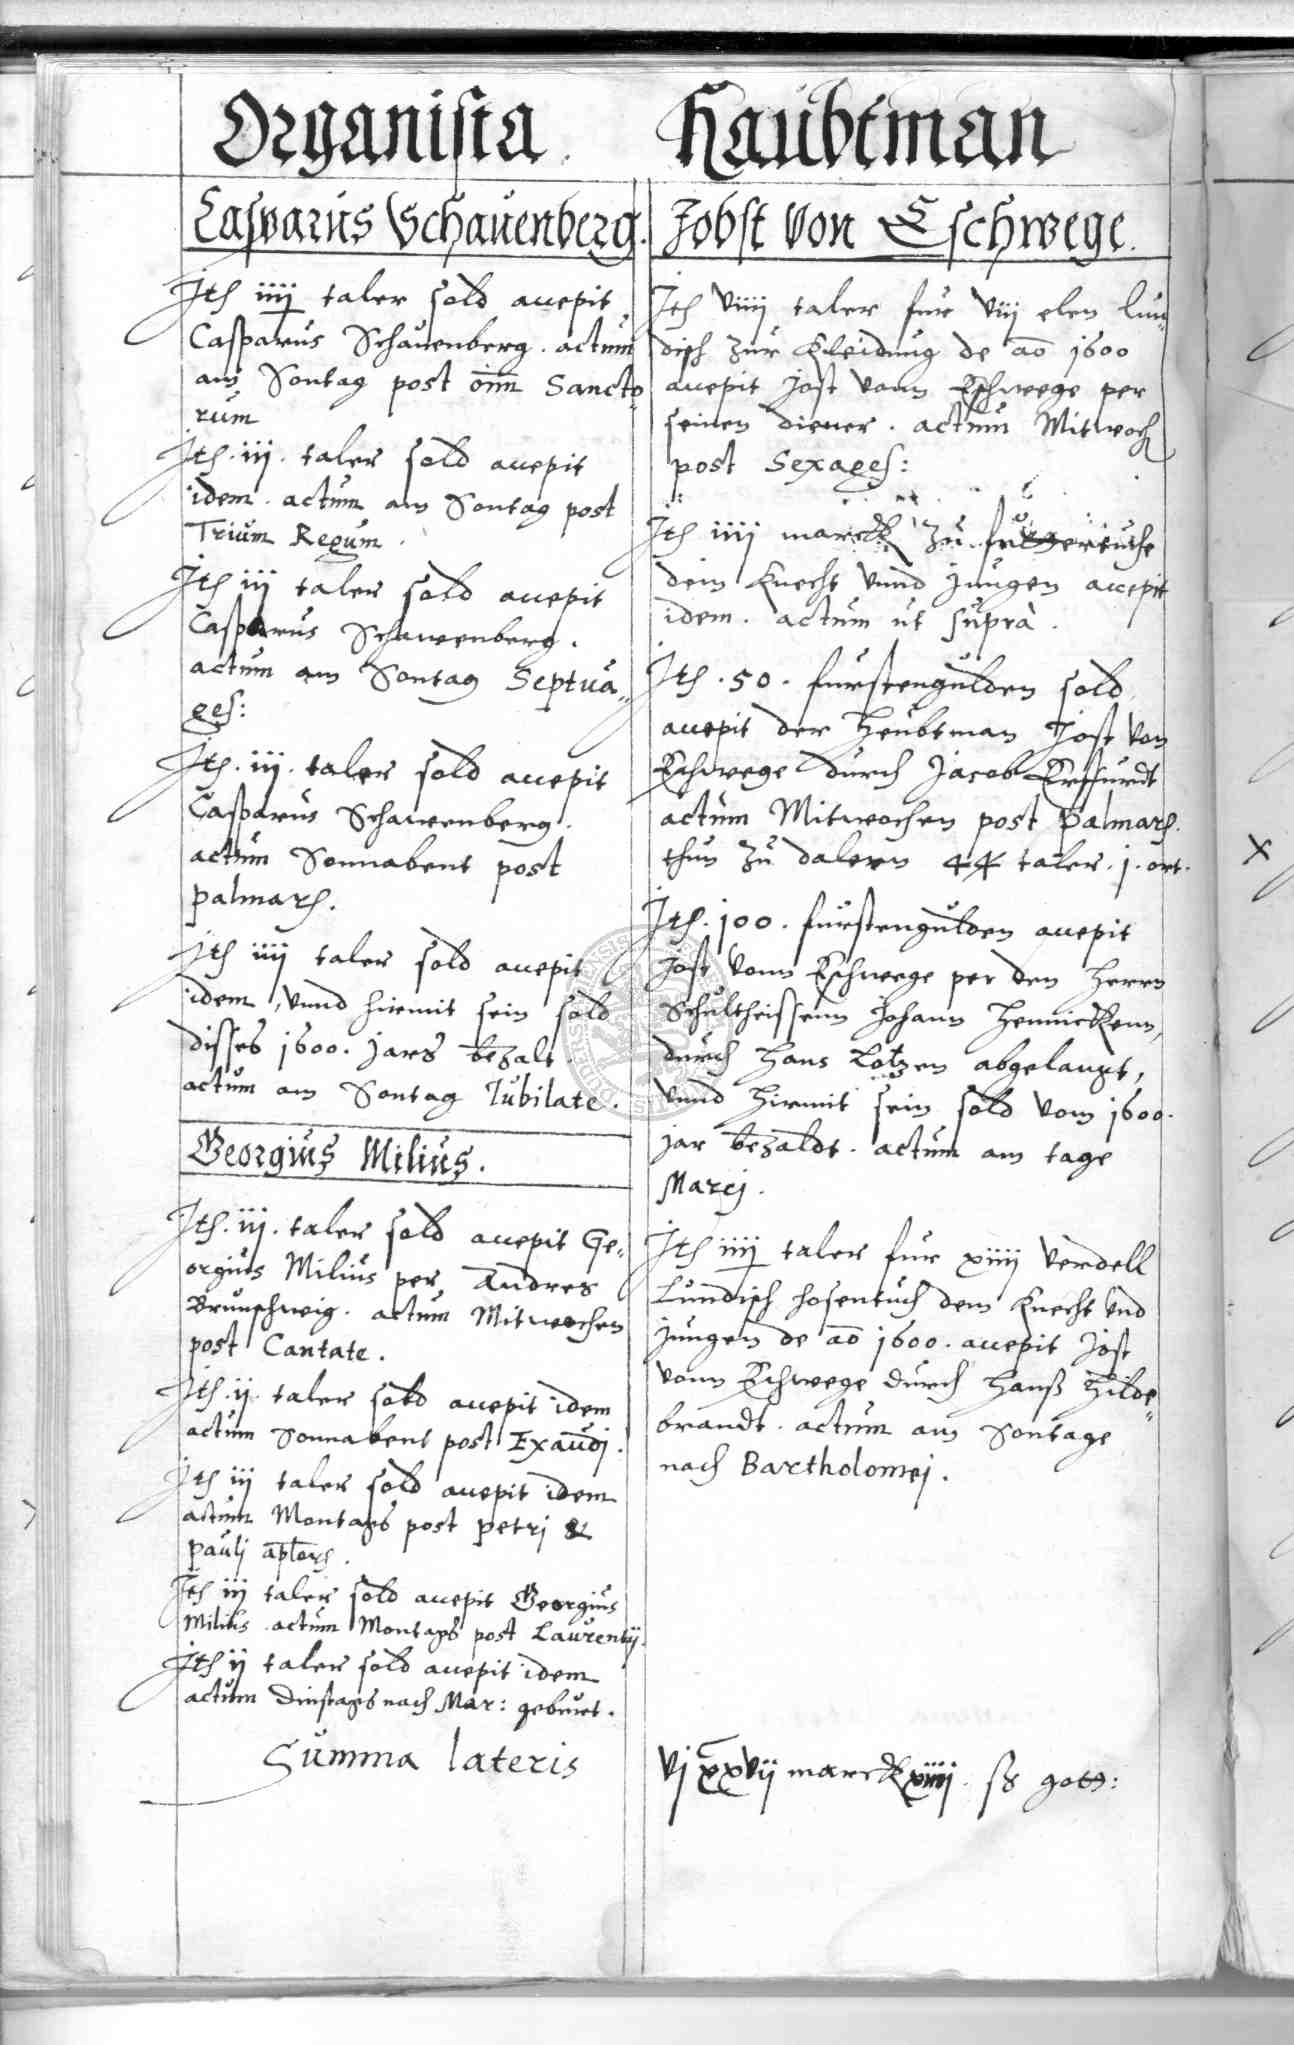 Organista
Casparus Schauenberg.
Jtem iiij taler sold accepit
Casparus Schauenberg. actum
am Sontag post o͞im Sancto-
rum
Jtem. iij. taler sold accepit
idem. actum am Sontag post
Trium Regum.
Jtem iij taler sold accepit
Casparus Schawenberg.
actum am Sontag Septua-
ges:
Jtem. iij. taler sold accepit
Casparus Schawenberg.
actum Sonnabent post
palmarum.
Jtem iiij taler sold accepit
idem, vnnd hiemit sein sold
disses 1600. jars bezalt.
actum am Sontag Jubilate.
Georgius Milius.
Jtem. iij. taler sold accepit Ge-
orgius Milius per Andres
Brunschweig. actum Mitwochen
post Cantate.
Jtem. ij. taler sold accepit idem
actum Sonnabent post Exaudj.
Jtem iij taler sold accepit idem
actum Montags post petrj &
paulj ap̅lorum.
Jtem iij taler sold accepit Georgius
Milius. actum Montags post Laurentij.
Jtem ij taler sold accepit idem
actum Dinstags nach Mar: geburt.
Summa lateris
Haubtman
Jobst von Eschwege.
Jtem viiij taler fur viij elen lun-
disch zur kleidung de ao 1600
accepit Jost vonn Eschwege per
seinen diener. actum Mitwoch
post Sexages:
Jtem iiij marck zu futtertuche
dem knecht vnnd jungen accepit
idem. actum ut supra.
Jtem. 50. furstengulden sold
accepit der Heubtman Jost von
Eschwege durch Jacob Erffurdt
actum Mitwochen post palmarum.
thun zu dalern 44 taler. j. ort.
Jtem. 100. furstengulden accepit
Jost vonn Eschwege per den Herrn
Schultheissenn Johann Hennickenn,
durch Hans Lotzen abgelangt,
vnnd hiemit sein sold vom 1600.
jar bezaldt. actum am tage
Marcj.
Jtem iiij taler fur xiiij verdell
Lundisch hosentuch dem knecht vnd
jungen de ao 1600. accepit Jost
vonn Eschwege durch Hanß Hilde-
brandt. actum am Sontage
nach Bartholomej.
vj xxvij marck xiiij. ß gott: